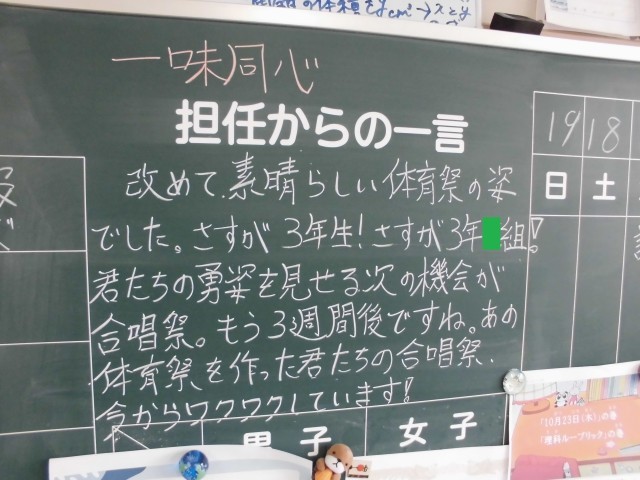 一味同心
担任からの一言
改めて、素晴らしい体育祭の姿
でした。さすが3年生!さすが3年組!
君たちの勇姿を見せる次の機会が
合唱祭。もう3週間後ですね。あの
体育祭を作った君たちの合唱祭、
今からワクワクしています!
男子 女子
19 18
日 土
「10月23日(水)」の巻
「理科ルーブリック」の巻